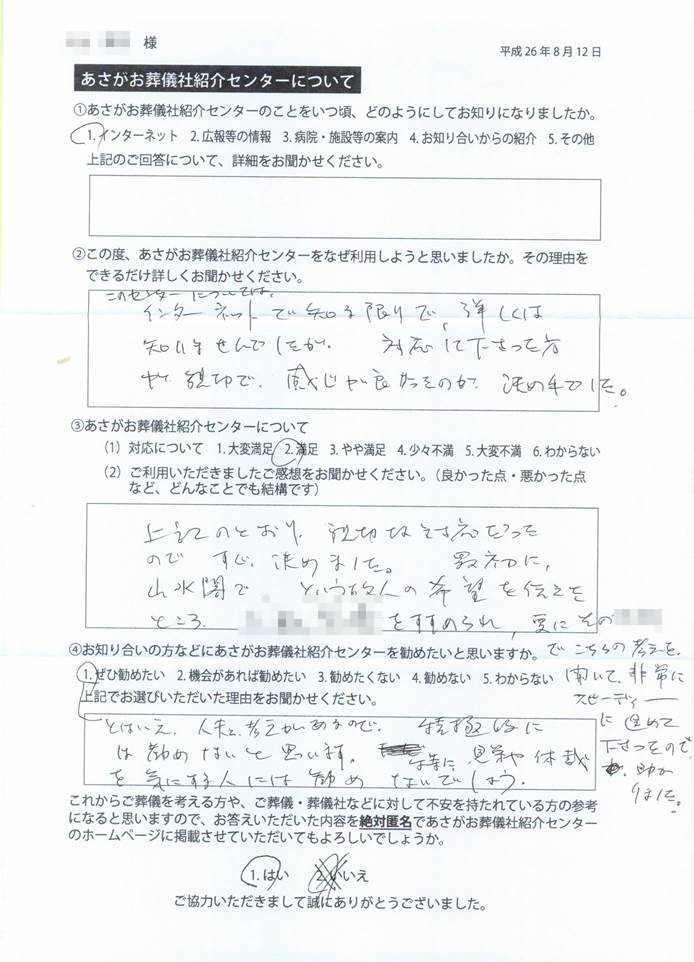 様
平成26年8月12日
あさがお葬儀社紹介センターについて
①あさがお葬儀社紹介センターのことをいつ頃、どのようにしてお知りになりましたか。
1. インターネット 2. 広報等の情報 3. 病院・施設等の案内 4. お知り合いからの紹介 5. その他
上記のご回答について、詳細をお聞かせください。
②この度、あさがお葬儀社紹介センターをなぜ利用しようと思いましたか。その理由を
できるだけ詳しくお聞かせください。
このセンターについては、
インターネットで知る限りで、詳しくは
知りませんでしたが、対応して下さった方
が、親切で、感じが良かったのが、決め手でした。
③あさがお葬儀社紹介センターについて
（1）対応について 1. 大変満足 2. 満足 3. やや満足 4. 少々不満 5. 大変不満 6. わからない
（2）ご利用いただきましたご感想をお聞かせください。（良かった点・悪かった点
など、どんなことでも結構です）
上記のとおり、親切な対応だった
ので すぐ、決めました。 最初に、
山水閣で という故人の希望を伝えた
ところ、 をすすめられ、更に その
でこちらの考えを
聞いて、非常に
スピーディー
に進めて
下さったので
助か
りました。
④お知り合いの方などにあさがお葬儀社紹介センターを勧めたいと思いますか。
1. ぜひ勧めたい 2. 機会があれば勧めたい 3. 勧めたくない 4. 勧めない 5. わからない
上記でお選びいただいた理由をお聞かせください。
とはいえ、人夫々考えがあるので、積極的に
は勧めないと思います。 特に、見栄や体裁
を気にする人には勧めないでしょう。
これからご葬儀を考える方や、ご葬儀・葬儀社などに対して不安を持たれている方の参考
になると思いますので、お答えいただいた内容を絶対匿名であさがお葬儀社紹介センター
のホームページに掲載させていただいてもよろしいでしょうか。
1. はい 2. いいえ
ご協力いただきまして誠にありがとうございました。